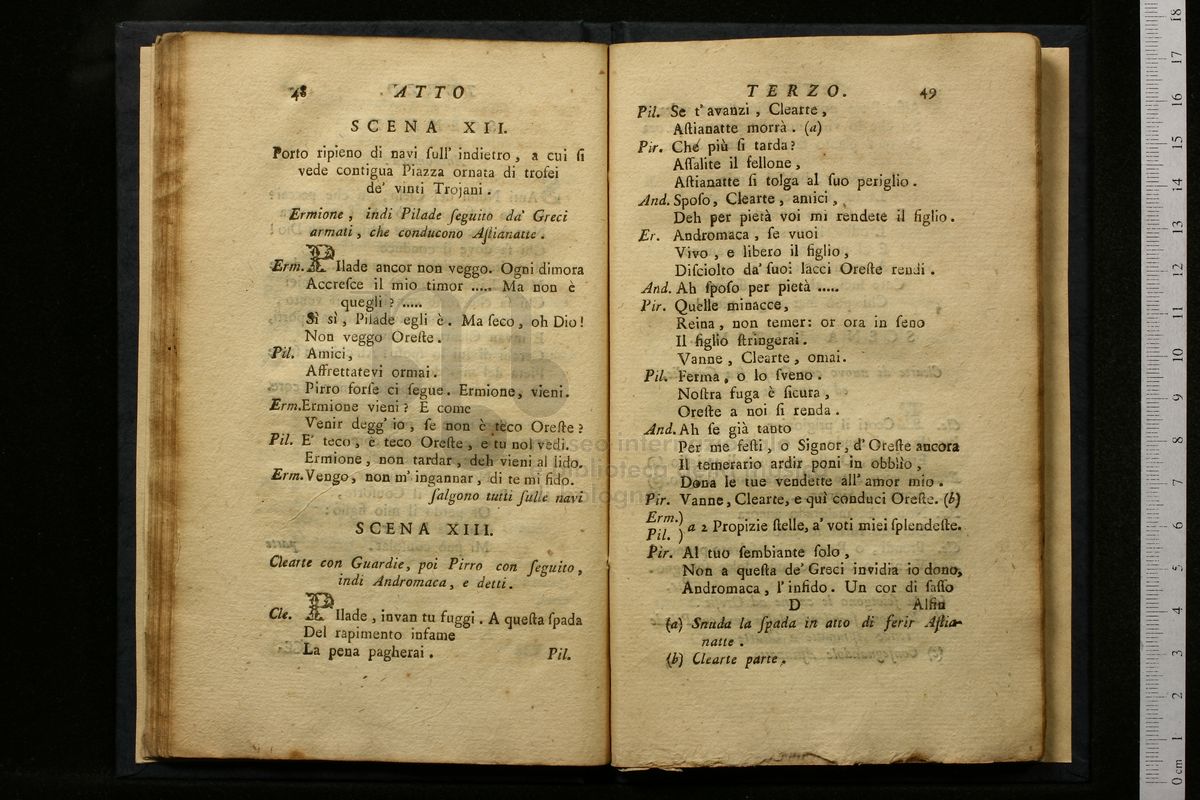 48 ATTO
SCENA XII.
Porto ripieno di navi ſull' indietro, a cui ſi
vede contigua Piazza ornata di trofei
de' vinti Trojani.
Ermione, indi Pilade ſeguito da' Greci
armati, che conducono Aſtianatte.
Erm. PIlade ancor non veggo. Ogni dimora
Accreſce il mio timor ..... Ma non è
quegli? .....
Sì sì, Pilade egli è. Ma ſeco, oh Dio!
Non veggo Oreſte.
Pil. Amici,
Affrettatevi ormai.
Pirro forſe ci ſegue. Ermione, vieni.
Erm. Ermione vieni? E come
Venir degg' io, ſe non è teco Oreſte?
Pil. E' teco, è teco Oreſte, e tu nol vedi.
Ermione, non tardar, deh vieni al lido.
Erm. Vengo, non m' ingannar, di te mi fido.
ſalgono tutti ſulle navi
SCENA XIII.
Clearte con Guardie, poi Pirro con ſeguito,
indi Andromaca, e detti.
Cle. PIlade, invan tu fuggi. A queſta ſpada
Del rapimento infame
La pena pagherai.
Pil.
TERZO. 49
Pil. Se t' avanzi, Clearte,
Aſtianatte morrà. (a)
Pir. Ché più ſi tarda?
Aſſalite il fellone,
Aſtianatte ſi tolga al ſuo periglio.
And. Spoſo, Clearte, amici,
Deh per pietà voi mi rendete il figlio.
Er. Andromaca, ſe vuoi
Vivo, e libero il figlio,
Diſciolto da' ſuoi lacci Oreſte rendi.
And. Ah ſpoſo per pietà .....
Pir. Quelle minacce,
Reina, non temer: or ora in ſeno
Il figlio ſtringerai.
Vanne, Clearte, omai.
Pil. Ferma, o lo ſveno.
Noſtra fuga è ſicura,
Oreſte a noi ſi renda.
And. Ah ſe già tanto
Per me feſti, o Signor, d' Oreſte ancora
Il temerario ardir poni in obblìo,
Dona le tue vendette all' amor mio.
Pir. Vanne, Clearte, e quì conduci Oreſte. (b)
Erm.)
Pil. ) a 2 Propizie ſtelle, a' voti miei ſplendeſte.
Pir. Al tuo ſembiante ſolo,
Non a queſta de' Greci invidia io dono,
Andromaca, l' infido. Un cor di ſaſſo
D Alfin
(a) Snuda la ſpada in atto di ferir Aſtia-
natte.
(b) Clearte parte.